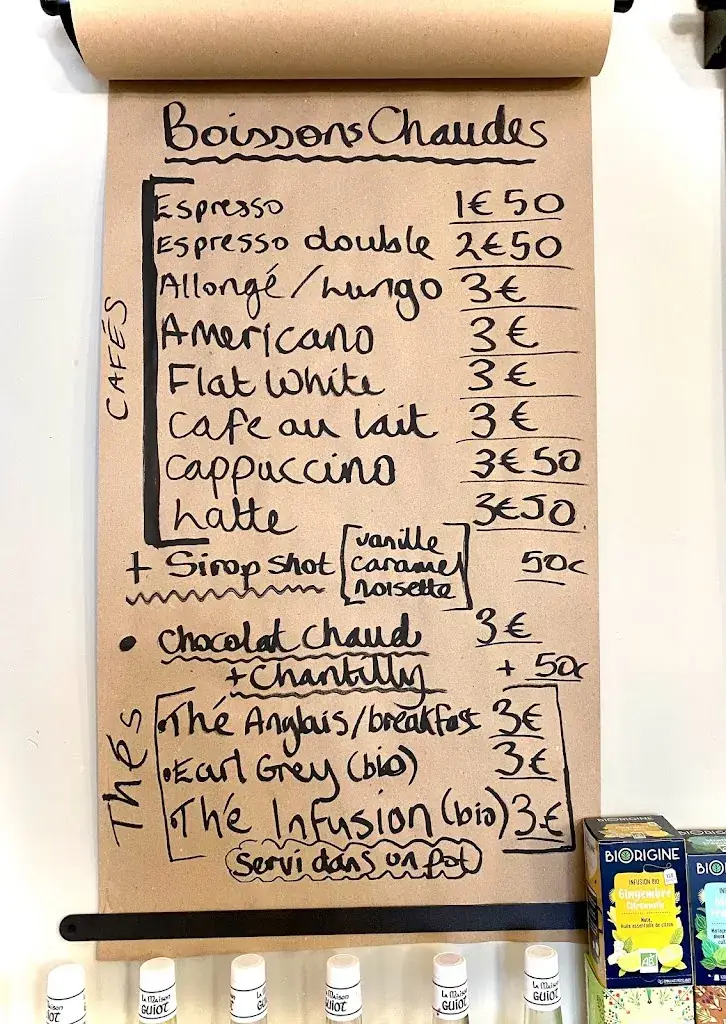 Boissons Chaudes
CAFÉS
Espresso 1€50
Espresso double 2€50
Allongé/Lungo 3€
Americano 3€
Flat White 3€
Cafe au lait 3€
Cappuccino 3€50
Latte 3€50
+ Sirop shot [vanille caramel noisette] 50c
• Chocolat Chaud 3€
+ Chantilly + 50c
Thés
• Thé Anglais/breakfast 3€
• Earl Grey (bio) 3€
• Thé Infusion (bio) 3€
Servi dans un pot
BIORIGINE
INFUSION BIO
Gingembre
Citronnelle
AB
BIO
LA MAISON
GUIOT
LA MAISON
GUIOT
LA MAISON
GUIOT
LA MAISON
GUIOT
LA MAISON
GUIOT
LA MAISON
GUIOT